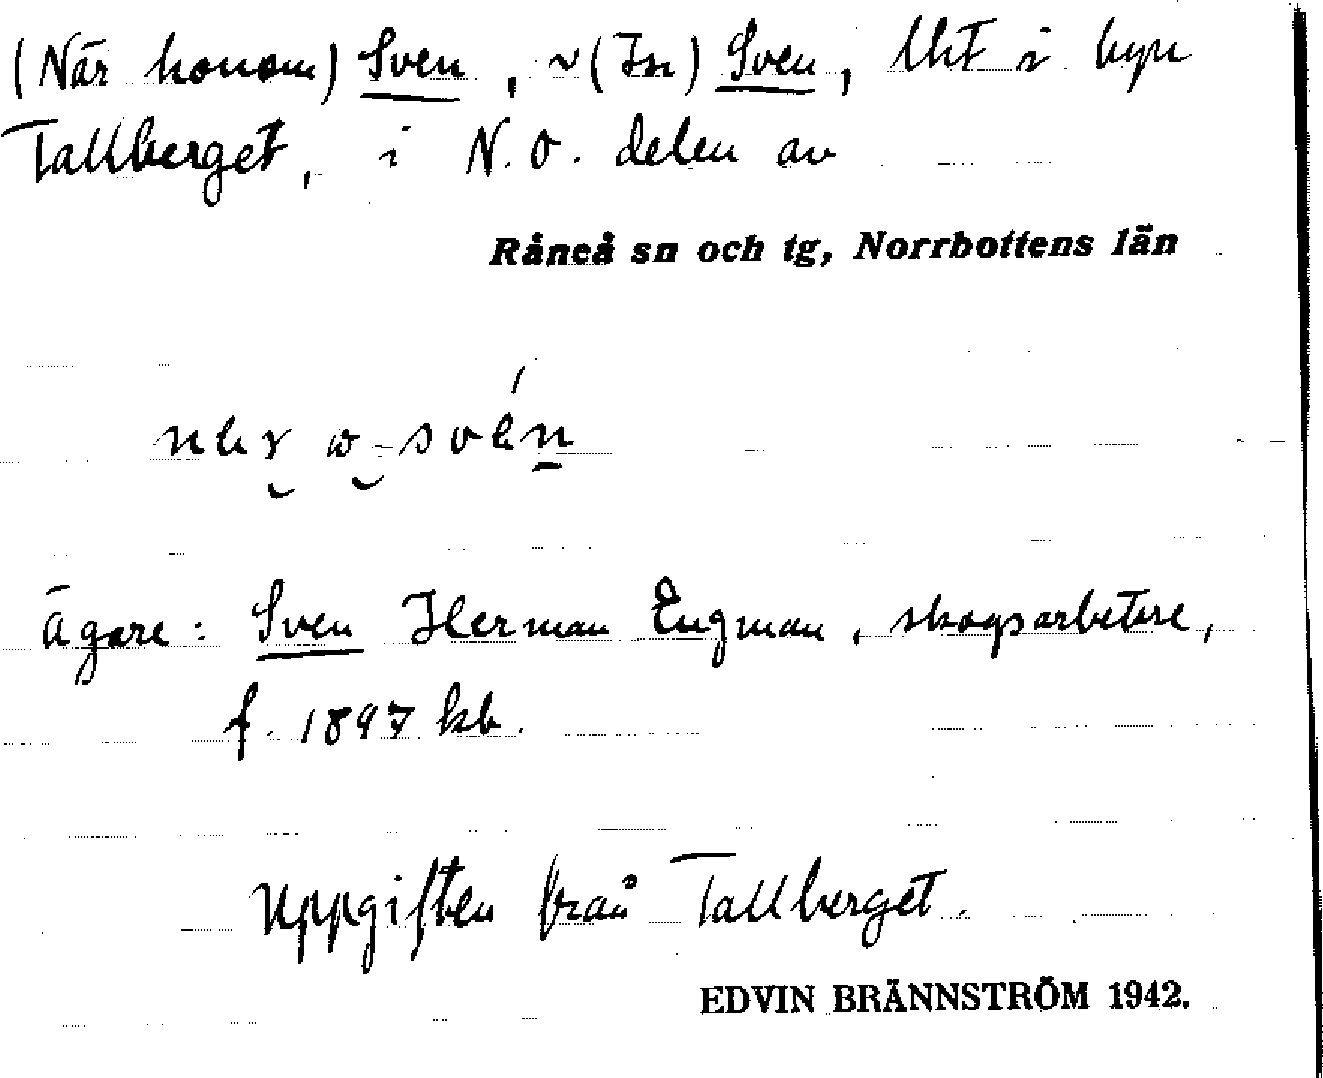 (När honom) Sven, ~ (In) Sven, lht i byn
Tallberget, i N.O. delen av
Råneå sn och tg, Norrbottens län
Ägare: Sven Herman Engman, skogsarbetare,
f. 1897 kb.
Uppgiften från Tallberget.
EDVIN BRÄNNSTRÖM 1942.